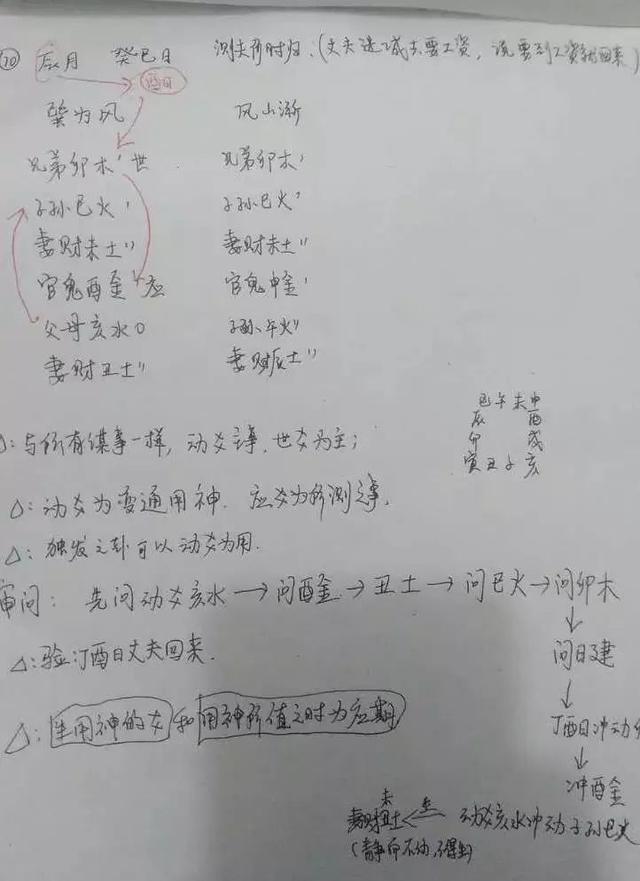 ⑩ 辰月 癸巳日 测夫何时归:(丈夫进城去要工资,说要到工资就回来)
巽为风 风山渐
兄弟卯木' 世 兄弟卯木'
子孙巳火' 子孙巳火'
妻财未土" 妻财未土"
官鬼酉金' 应 官鬼申金'
父母亥水〇 子孙午火"
妻财丑土" 妻财辰土"
巳午未申
辰 酉
卯 戌
寅丑子亥
△:与所有谋事一样,动爻主事,世爻为主;
△:动爻为变通用神. 应爻为所测之事.
△:独发之卦可以动爻为用.
审问: 先问动爻亥水→问酉金→丑土→问巳火→问卯木
↓
问日建
↓
丁酉日冲动
↓
冲酉金
△:验:丁酉日丈夫回来.
△:生用神的爻和用神所值之时为应期
未
妻财丑土 ← 生 动爻亥水冲动子孙巳火
(静而不伤,